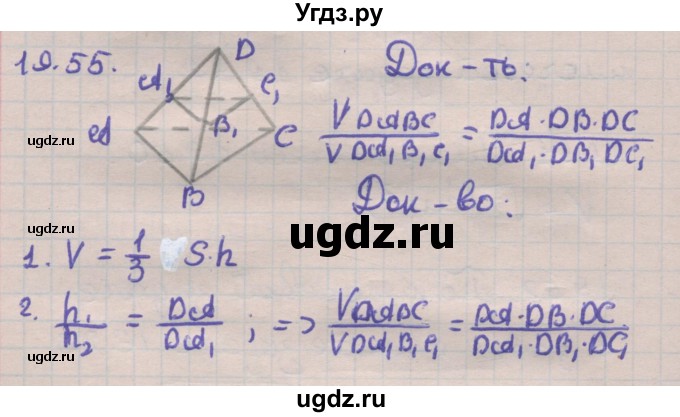 Угдз.ру
19.55.
D
A₁
C₁
A
B₁
C
B
Док-ть:
V DABC / V DA₁B₁C₁ = DA·DB·DC / DA₁·DB₁DC₁
Док-во:
ugdz.ru
ugdz.ru
ugdz.ru
ugdz.ru
1. V = 1/3 S·h
2. h₁/h₂ = DA/DA₁ ; => V DABC / V DA₁B₁C₁ = DA·DB·DC / DA₁·DB₁·DC₁
ugdz.ru
ugdz.ru
ugdz.ru